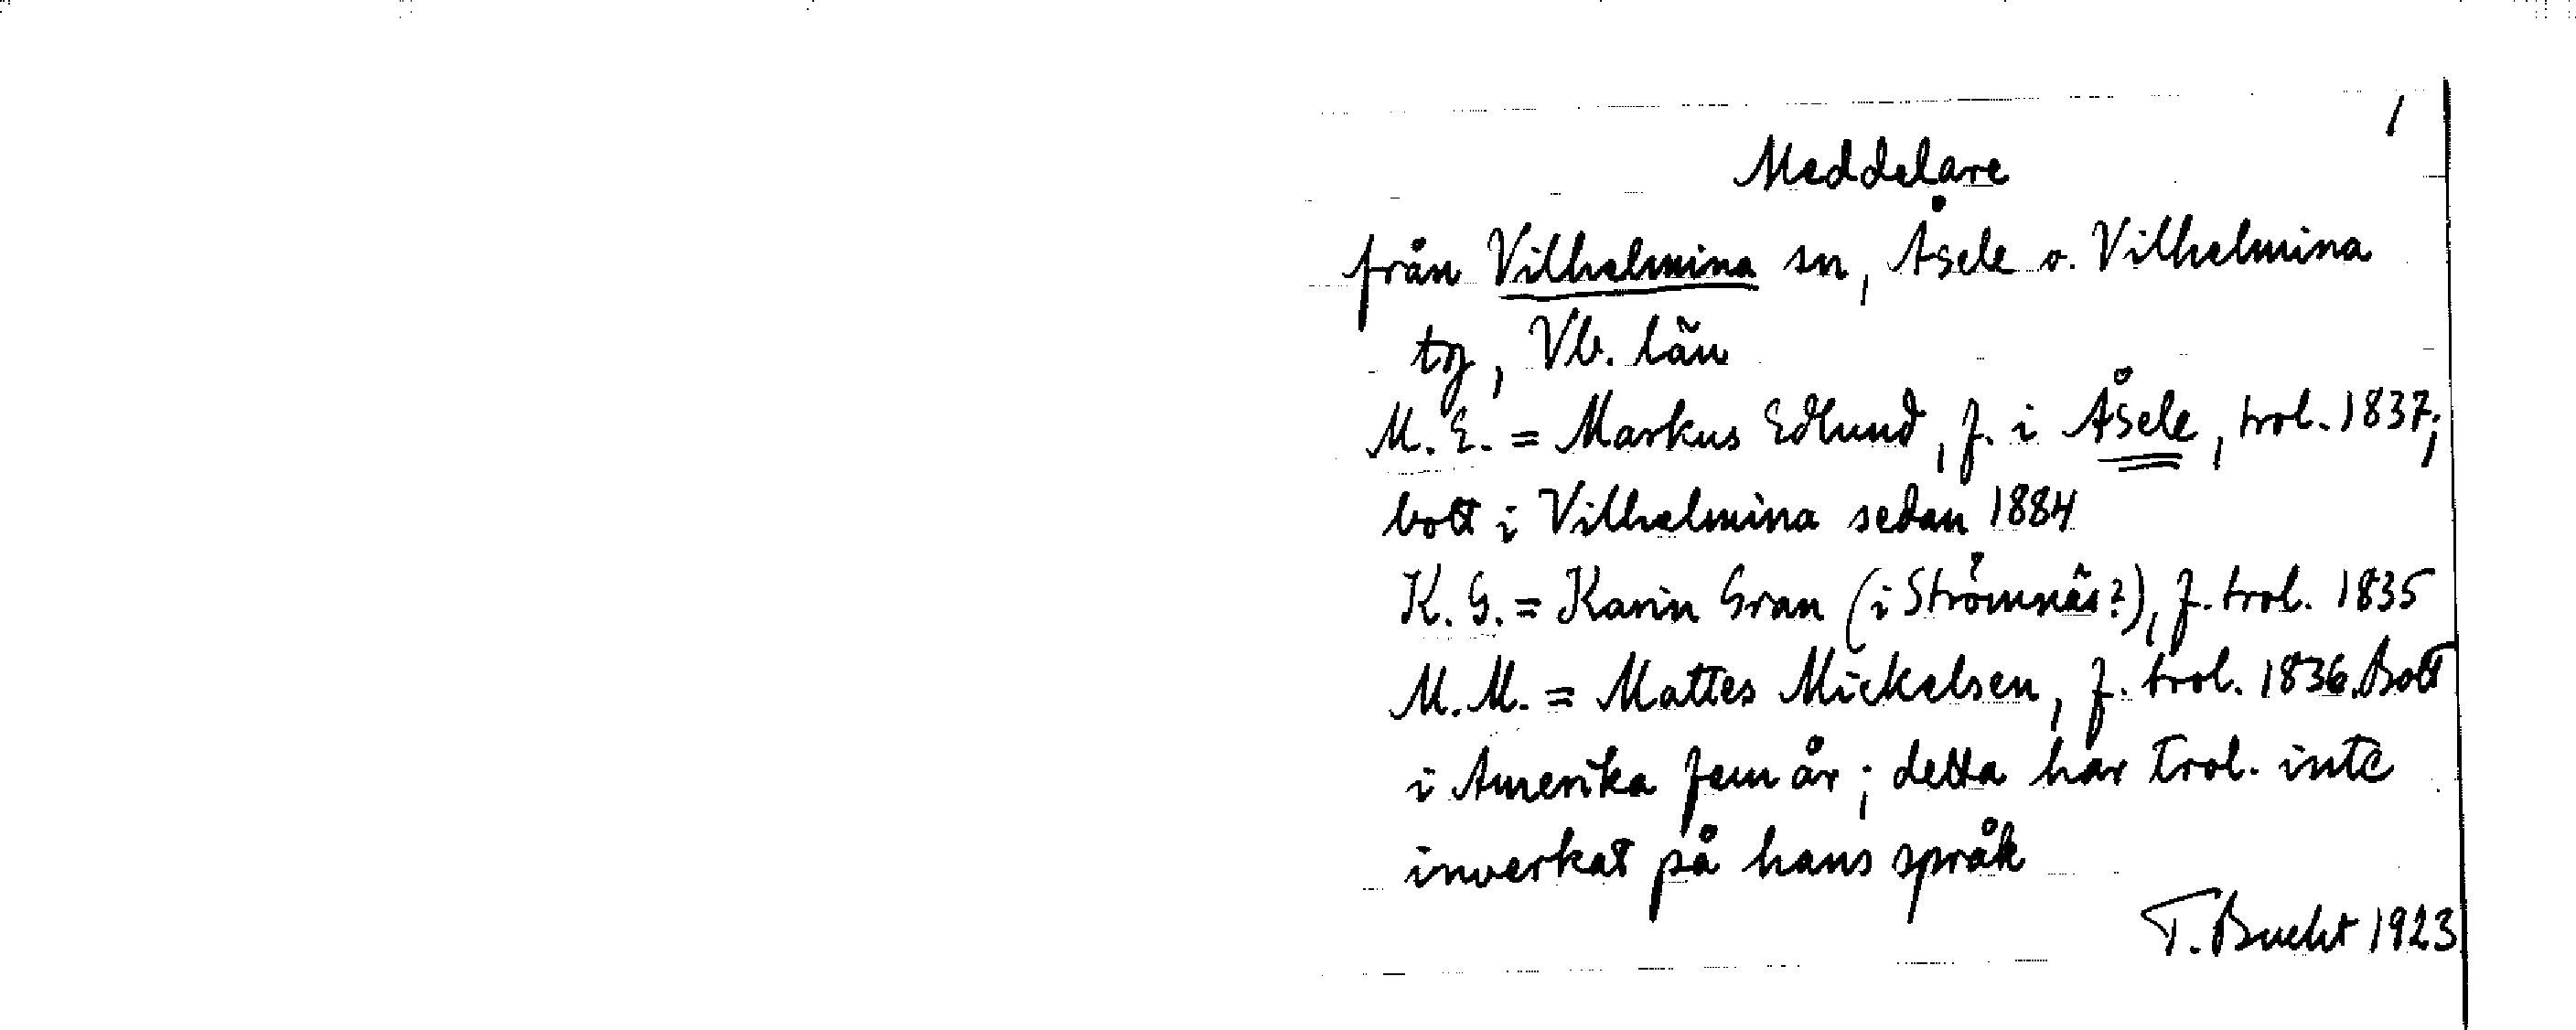 1
Meddelare
från Vilhelmina sn, Åsele o. Vilhelmina
tg, Vb. län
M. E. = Markus Edlund, f. i Åsele, trol. 1837;
bott i Vilhelmina sedan 1884
K. G. = Karin Gran (i Strömnäs?), f. trol. 1835
M. M. = Mattes Mickelsen, f. trol. 1836. Bott
i Amerika fem år; detta har trol. inte
inverkat på hans språk
T. Bucht 1923